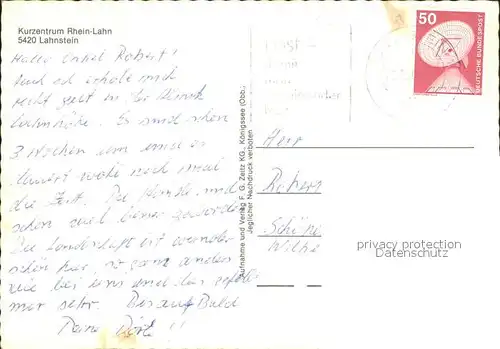 Kurzentrum Rhein-Lahn
5420 Lahnstein
Hallo Onkel Robert!
Auch ich erhole mich
recht gut in der Klinik
Lahnhöhe. Es sind schon
3 Wochen um und es
dauert wohl noch mal
die Zeit. Die Hände sind
schon viel besser geworden.
Die Landschaft ist wunder-
schön hier, so ganz anders
wie bei uns und das gefällt
mir sehr. Bis auf Bald
Deine
Aufnahme und Verlag F. G. Zeitz KG., Königssee (Obb.)
Jeglicher Nachdruck verboten
50
DEUTSCHE BUNDESPOST
Herr
Robert
privacy protection
Datenschutz